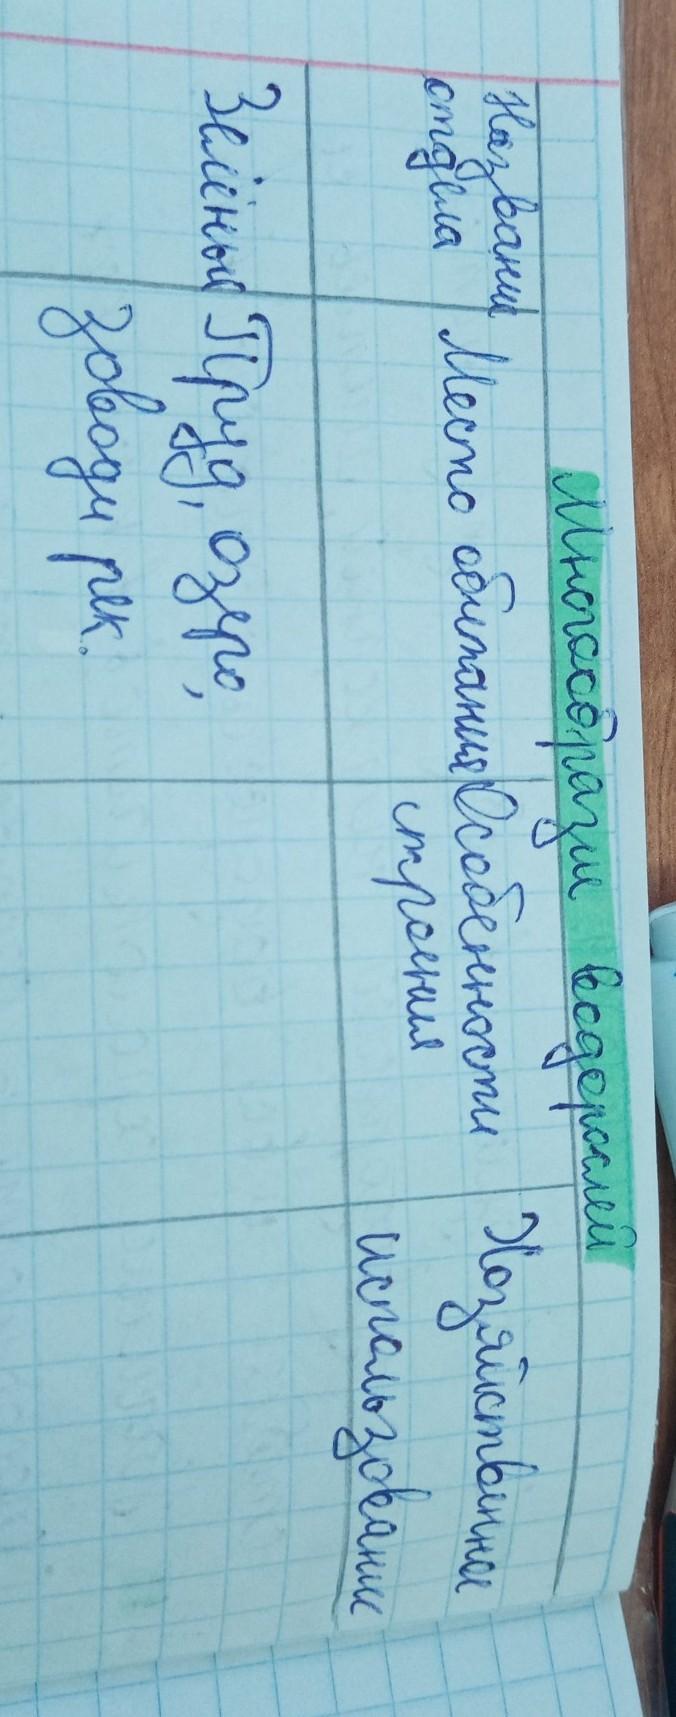 Многообразие водорослей
Название
отдела
Место обитания
Особенности
строения
Хозяйственное
использование
Зелёные
Пруд, озеро,
заводи рек.